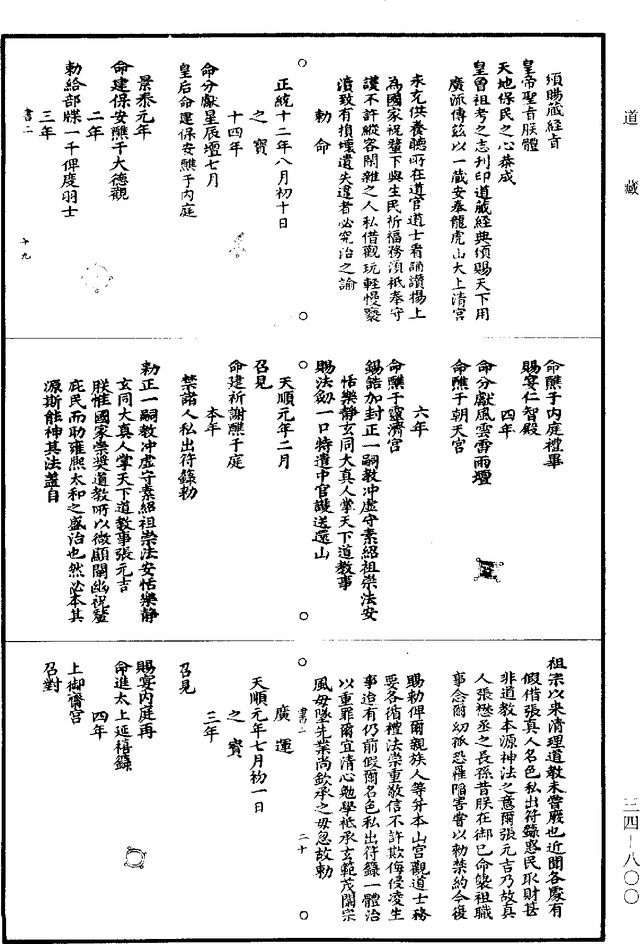 道藏
頒賜藏經旨
皇帝聖旨朕體
天地保民之心恭成
皇曾祖考之志刊印道藏經典頒賜天下用
廣流傳茲以一藏安奉龍虎山大上清宮
永充供養聽所在道官道士看誦讚揚上
為國家祝釐下與生民祈福務須祗奉守
護不許縱容閑雜之人私借觀玩輕慢褻
瀆致有損壞遺失違者必究治之諭
勅命
正統十二年八月初十日
之寶
十四年
命分獻星辰壇七月
皇后命建保安醮于內庭
景泰元年
命建保安醮于大德觀
二年
勅給部牒一千俾度羽士
三年
書二
十九
命醮于內庭禮畢
賜宴仁智殿
四年
命分獻風雲雷雨壇
命醮于朝天宮
六年
命醮于靈濟宮
錫誥加封正一嗣教冲虛守素紹祖崇法安
恬樂靜玄同大真人掌天下道教事
賜法劒一口特遣中官護送還山
天順元年二月
召見
命建祈謝醮于庭
本年
禁諸人私出符籙勅
勅正一嗣教冲虛守素紹祖崇法安恬樂靜
玄同大真人掌天下道教事張元吉
朕惟國家崇獎道教所以微顯闡幽祝釐
庇民而助雍熙太和之盛治也然必本其
源斯能神其法蓋自
祖宗以來清理道教未嘗廢也近聞各處有
假借張真人名色私出符籙惑民取財甚
非道教本源神法之意爾張元吉乃故真
人張懋丞之長孫昔朕在御已命襲祖職
事念爾幼孤恐罹陷害嘗以勅禁約今復
賜勅俾爾親族人等并本山宮觀道士務
要各循禮法崇重敬信不許欺侮侵凌生
事迫有仍前假爾名色私出符籙一體治
以重罪爾宜清心勉學祗承玄範茂闡宗
風毋墜先業尚欽承之毋忽故勅
書二
二十
廣運
天順元年七月初一日
之寶
三年
召見
賜宴內庭再
命進太上延禧籙
四年
上御齋宮
召對
三四－八〇〇